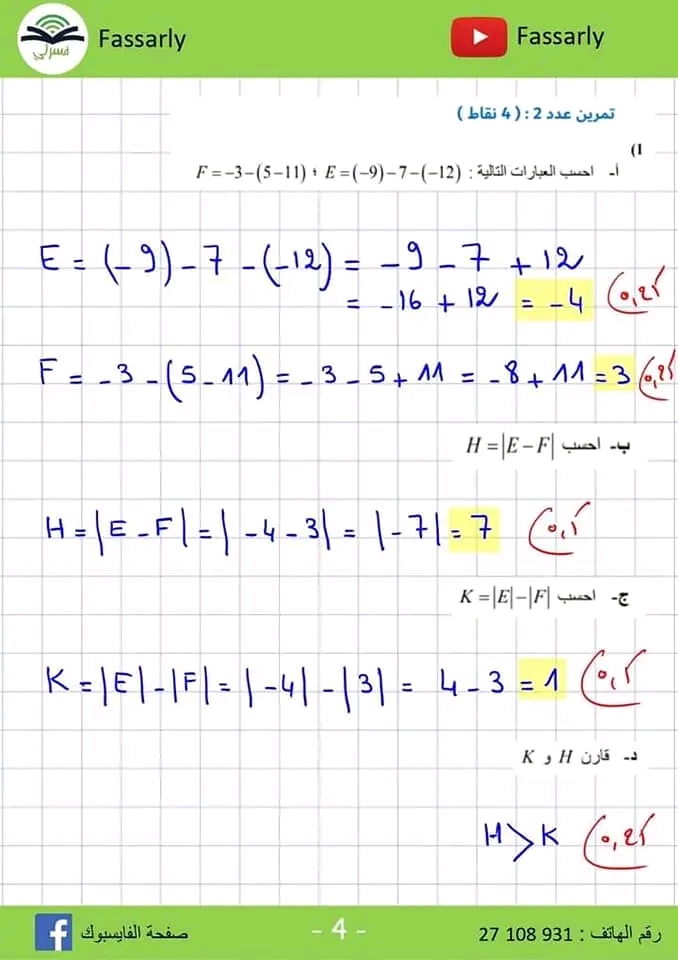 فسرلي
Fassarly
Fassarly
تمرين عدد 2 : ( 4 نقاط )
1)
أ- احسب العبارات التالية : E = (−9) − 7 − (−12) ؛ F = −3 − (5 − 11)
E = (-9) - 7 - (-12) = -9 - 7 + 12
= -16 + 12 = -4
0,25
F = -3 - (5 - 11) = -3 - 5 + 11 = -8 + 11 = 3
0,25
ب- احسب H = |E − F|
H = |E - F| = |-4 - 3| = |-7| = 7
ج- احسب K = |E| − |F|
K = |E| - |F| = |-4| - |3| = 4 - 3 = 1
د- قارن H و K
H > K
0,25
صفحة الفايسبوك
- 4 -
رقم الهاتف : 27 108 931